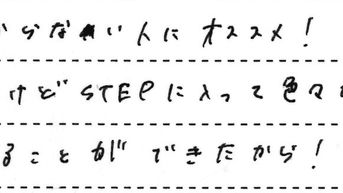 らない人にオススメ!
けどSTEPに入って色々
ることができたから!